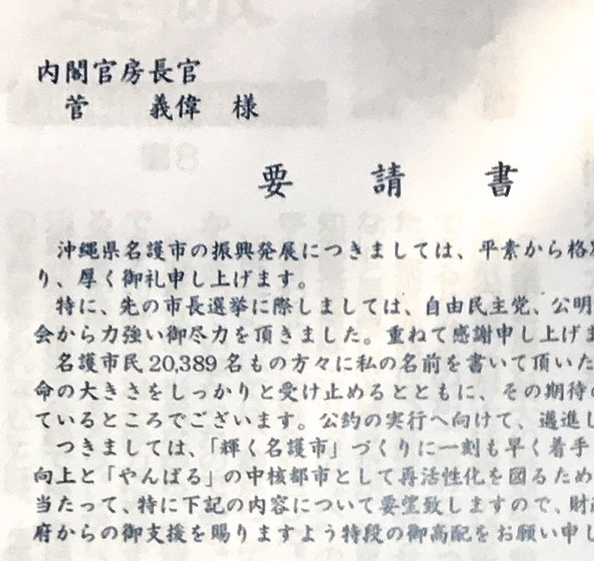 内閣官房長官
菅　義偉　様
要請書
沖縄県名護市の振興発展につきましては、平素から格別
り、厚く御礼申し上げます。
特に、先の市長選挙に際しましては、自由民主党、公明
会から力強い御尽力を頂きました。重ねて感謝申し上げま
名護市民20,389名もの方々に私の名前を書いて頂いた
命の大きさをしっかりと受け止めるとともに、その期待の
ているところでございます。公約の実行へ向けて、邁進し
つきましては、「輝く名護市」づくりに一刻も早く着手
向上と「やんばる」の中核都市として再活性化を図るため
当たって、特に下記の内容について要望致しますので、財
府からの御支援を賜りますよう特段の御高配をお願い申し